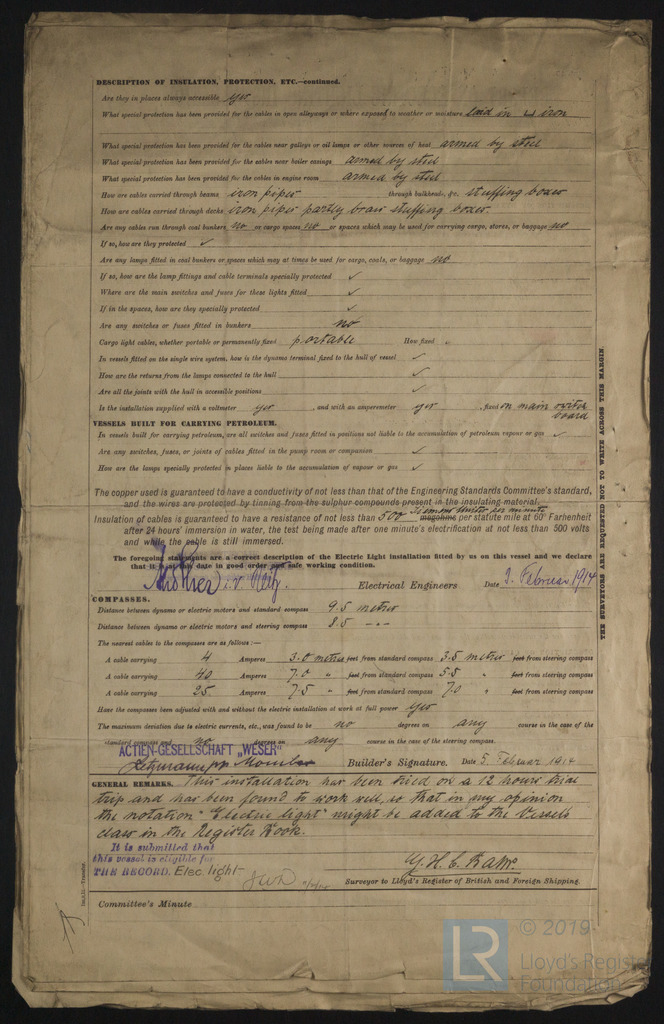 DESCRIPTION OF INSULATION, PROTECTION, ETC.—continued.
Are they in places always accessible yes
What special protection has been provided for the cables in open alleyways or where exposed to weather or moisture laid in iron
What special protection has been provided for the cables near galleys or oil lamps or other sources of heat armed by steel
What special protection has been provided for the cables near boiler casings armed by steel
What special protection has been provided for the cables in engine room armed by steel
How are cables carried through beams iron pipes through bulkheads, &c. stuffing boxes
How are cables carried through decks iron pipes partly brass stuffing boxes
Are any cables run through coal bunkers no or cargo spaces no or spaces which may be used for carrying cargo, stores, or baggage no
If so, how are they protected ✓
Are any lamps fitted in coal bunkers or spaces which may at times be used for cargo, coals, or baggage no
If so, how are the lamp fittings and cable terminals specially protected ✓
Where are the main switches and fuses for these lights fitted ✓
If in the spaces, how are they specially protected ✓
Are any switches or fuses fitted in bunkers no
Cargo light cables, whether portable or permanently fixed portable How fixed
In vessels fitted on the single wire system, how is the dynamo terminal fixed to the hull of vessel ✓
How are the returns from the lamps connected to the hull ✓
Are all the joints with the hull in accessible positions ✓
Is the installation supplied with a voltmeter yes, and with an amperemeter yes, fixed on main switch board
VESSELS BUILT FOR CARRYING PETROLEUM.
In vessels built for carrying petroleum, are all switches and fuses fitted in positions not liable to the accumulation of petroleum vapour or gas ✓
Are any switches, fuses, or joints of cables fitted in the pump room or companion ✓
How are the lamps specially protected in places liable to the accumulation of vapour or gas ✓
The copper used is guaranteed to have a conductivity of not less than that of the Engineering Standards Committee's standard,
and the wires are protected by tinning from the sulphur compounds present in the insulating material.
Insulation of cables is guaranteed to have a resistance of not less than 500 megohms per statute mile at 60° Farhenheit
after 24 hours' immersion in water, the test being made after one minute's electrification at not less than 500 volts
and while the cable is still immersed.
The foregoing statements are a correct description of the Electric Light installation fitted by us on this vessel and we declare
that it is at this date in good order and safe working condition.
Electrical Engineers Date 2. Februar 1914
COMPASSES.
Distance between dynamo or electric motors and standard compass 9.5 meter
Distance between dynamo or electric motors and steering compass 8.5 -"-
The nearest cables to the compasses are as follows:—
A cable carrying 4 Amperes 3.0 metres feet from standard compass 3.5 metres feet from steering compass
A cable carrying 40 Amperes 7.0 " feet from standard compass 5.5 " feet from steering compass
A cable carrying 25 Amperes 7.5 " feet from standard compass 7.0 " feet from steering compass
Have the compasses been adjusted with and without the electric installation at work at full power yes
The maximum deviation due to electric currents, etc., was found to be no degrees on any course in the case of the
standard compass and no degrees on any course in the case of the steering compass.
ACTIEN-GESELLSCHAFT „WESER"
Builder's Signature. Date 5. Februar 1914
GENERAL REMARKS. This installation has been tried on a 12 hours trial
trip and has been found to work well, so that in my opinion
the notation "Electric light" might be added to the Vessels
class in the Register Book.
It is submitted that
this vessel is eligible for
THE RECORD. Elec light
Surveyor to Lloyd's Register of British and Foreign Shipping.
Committee's Minute
THE SURVEYORS ARE REQUESTED NOT TO WRITE ACROSS THIS MARGIN.
© 2019
LR
Lloyd's Register
Foundation